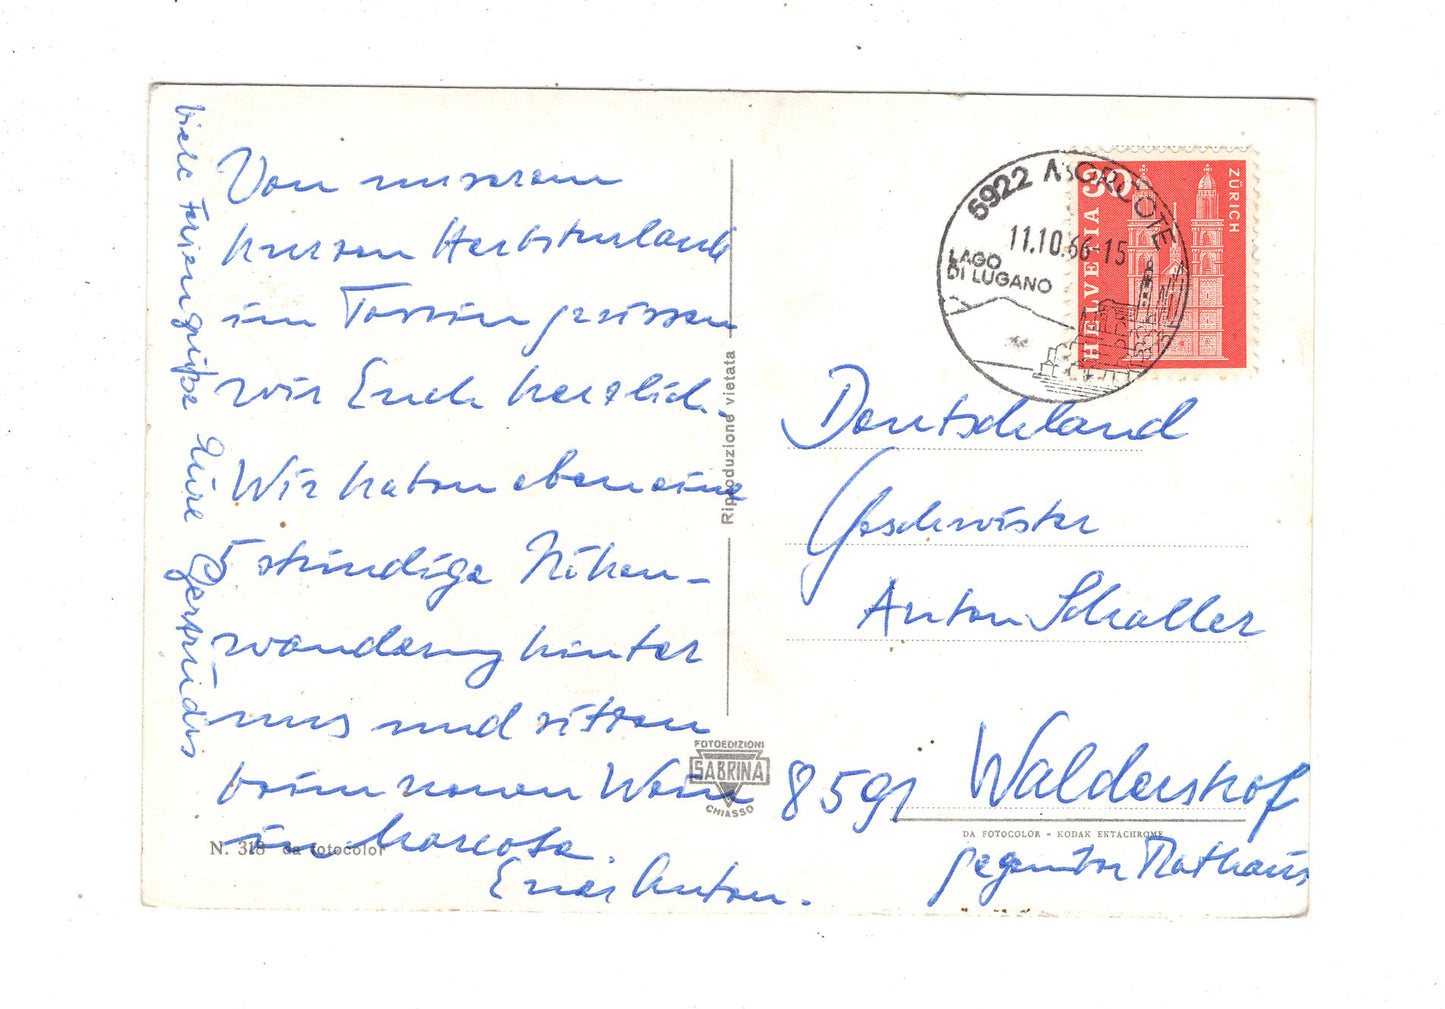 Von unserem
kurzen Herbsturlaub
im Tessin grüssen
wir Euch herzlich.
Wir haben eben eine
5 stündige Höhen-
wanderung hinter
uns und sitzen
beim neuen Wein
in Morcote.
Euer Anton.
Viele Feriengrüße Eure Gertrudis
N. 318 da fotocolor
Riproduzione vietata
FOTOEDIZIONI
SABRINA
CHIASSO
6922 MORCOTE
11.10.66-15
LAGO
DI LUGANO
30
HELVETIA
ZÜRICH
Deutschland
Geschwister
Anton Schaller
8591 Waldershof
DA FOTOCOLOR - KODAK EKTACHROME
gegenüber Rathaus